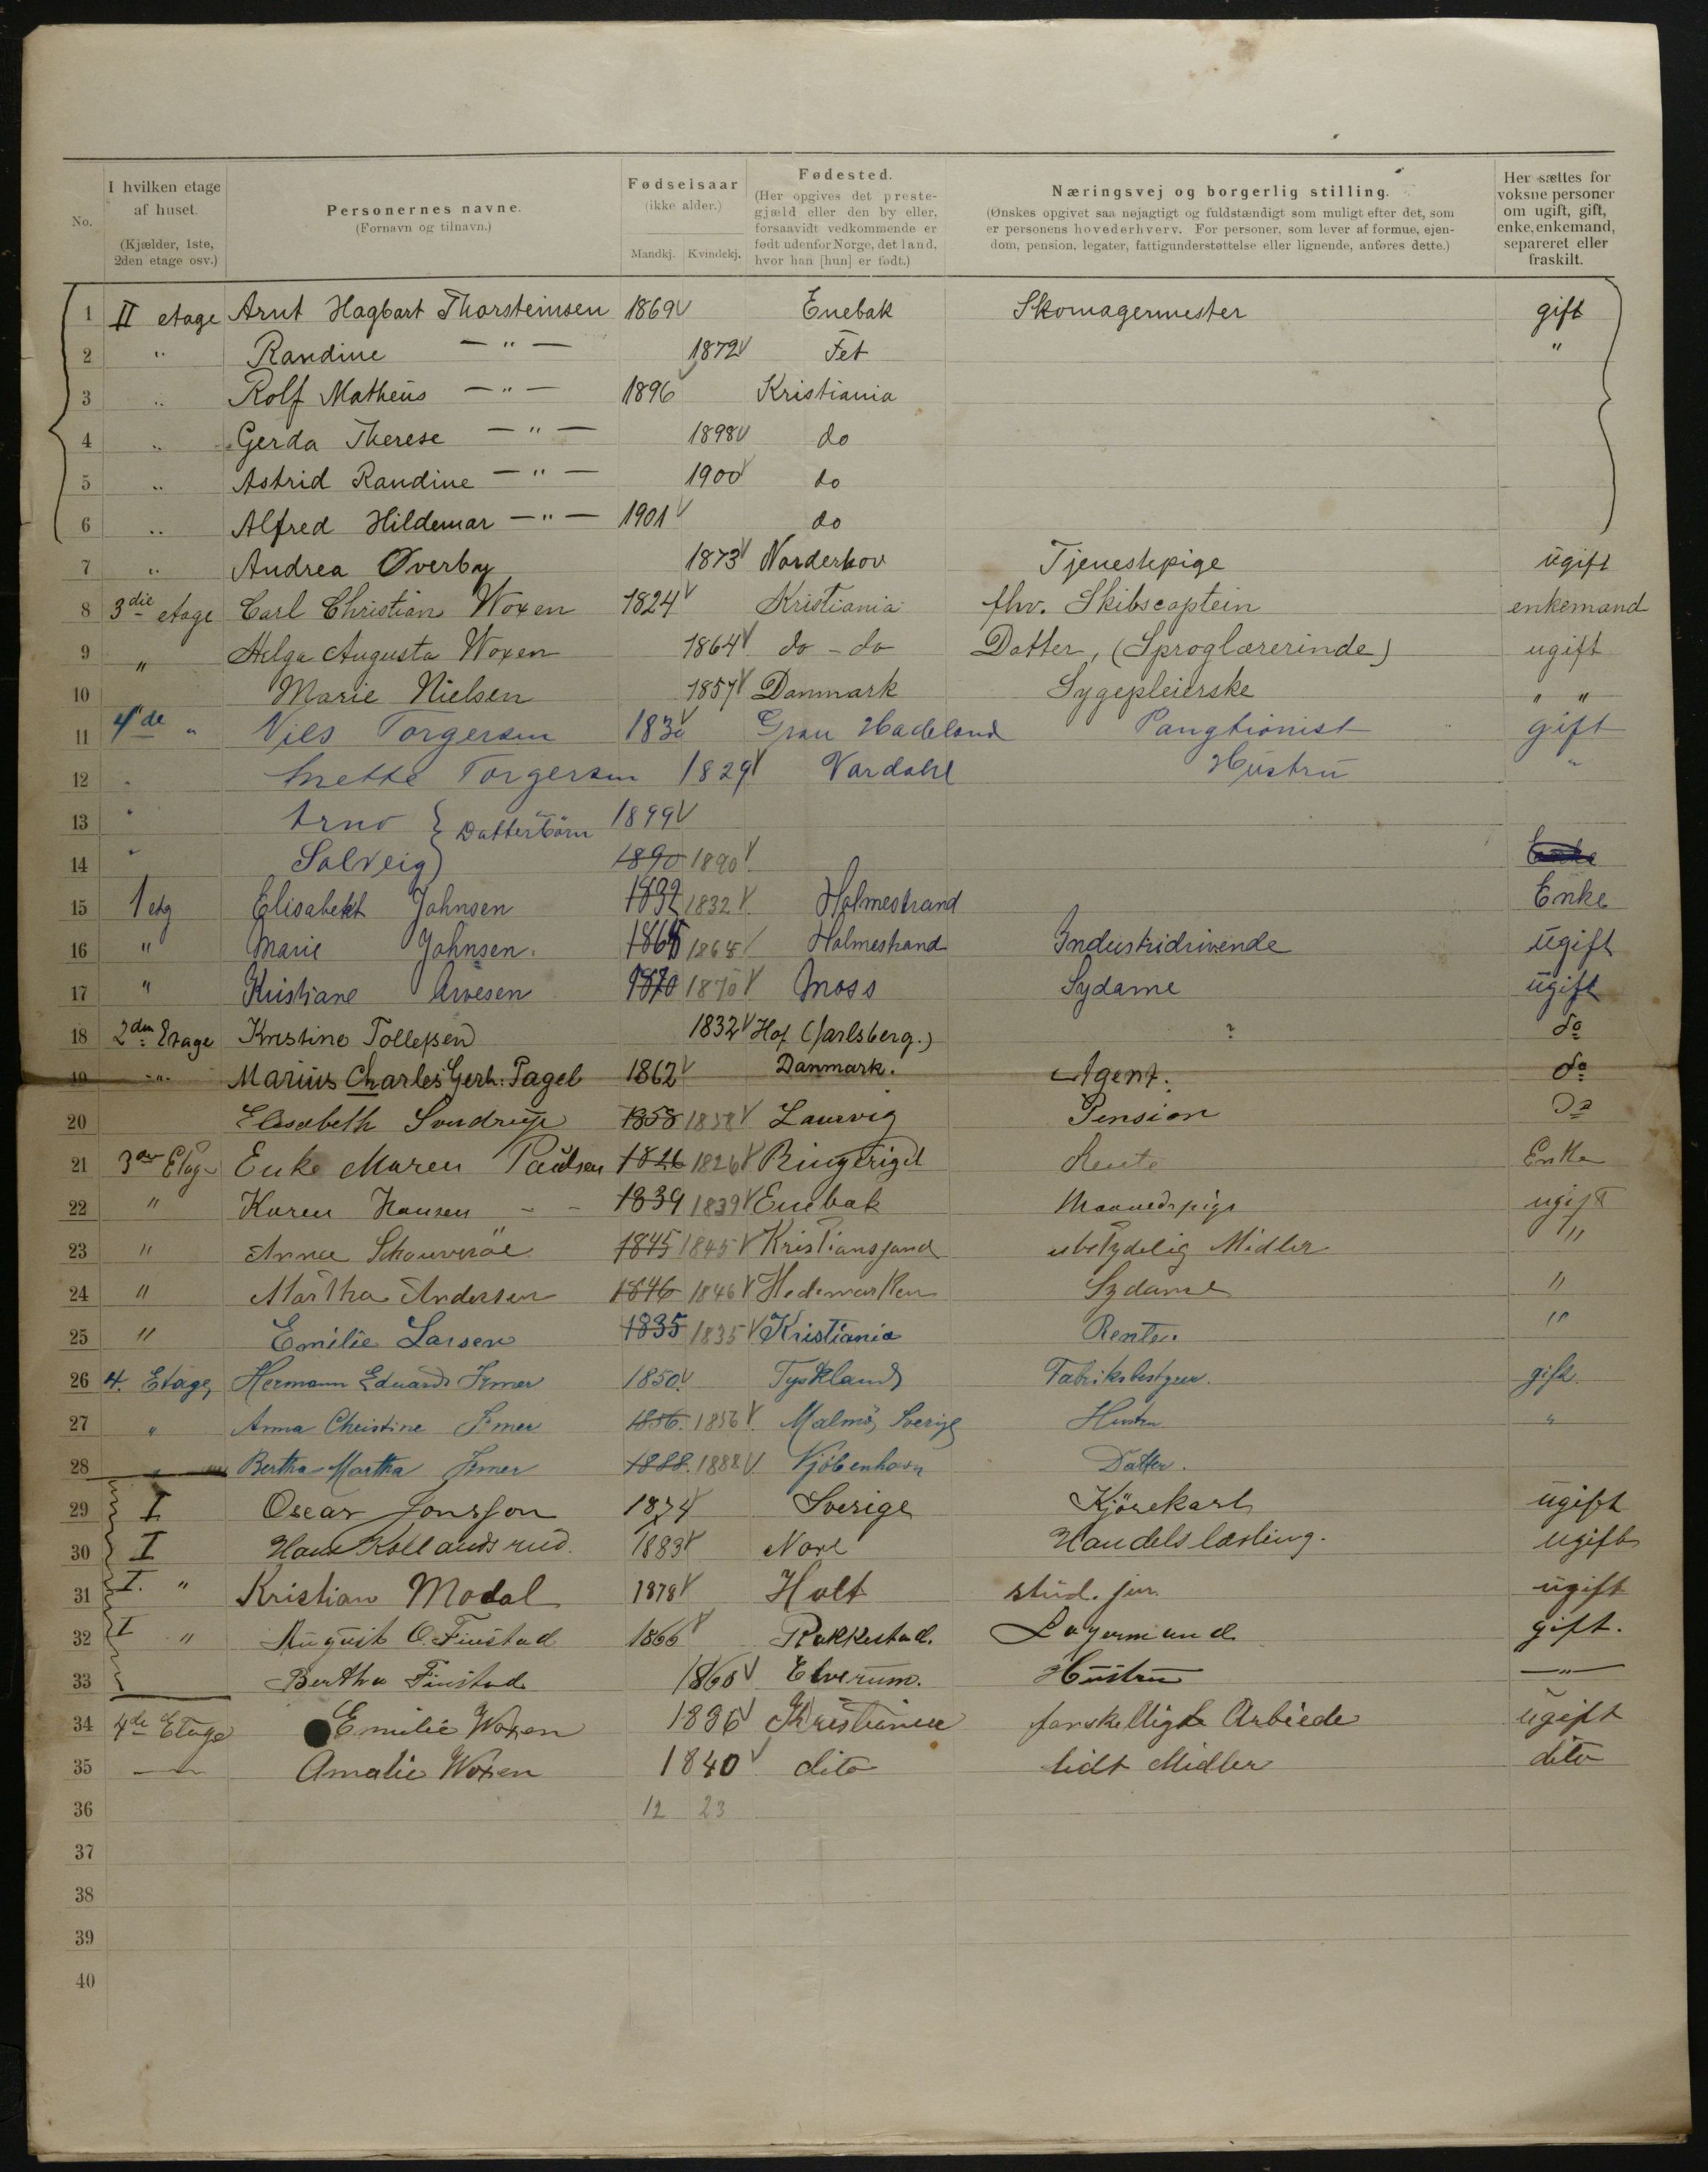 No.
I hvilken etage af huset. (Kjælder, 1ste, 2den etage osv.)
Personernes navne. (Fornavn og tilnavn.)
Fødselsaar (ikke alder.) Mandkj. Kvindekj.
Fødested. (Her opgives det prestegjæld eller den by eller, forsaavidt vedkommende er født udenfor Norge, det land, hvor han [hun] er født.)
Næringsvej og borgerlig stilling. (Ønskes opgivet saa nøjagtigt og fuldstændigt som muligt efter det, som er personens hovederhverv. For personer, som lever af formue, ejendom, pension, legater, fattigunderstøttelse eller lignende, anføres dette.)
Her sættes for voksne personer om ugift, gift, enke, enkemand, separeret eller fraskilt.
1 II etage Arnt Hagbart Thorsteinsen 1869 Enebak Skomagermester gift
2 " Randine — " — 1872 Fet "
3 " Rolf Matheus — " — 1896 Kristiania
4 " Gerda Therese — " — 1898 do
5 " Astrid Randine — " — 1900 do
6 " Alfred Hildemar — " — 1901 do
7 " Andrea Overby 1873 Norderhov Tjenestepige ugift
8 3die etage Carl Christian Woxen 1824 Kristiania fhv. Skibscaptein enkemand
9 " Helga Augusta Woxen 1864 do - do Datter, (Sproglærerinde) ugift
10 Marie Nielsen 1857 Danmark Sygepleierske " "
11 4de " Nils Torgersen 183 Gran Hadeland Pangtionist gift
12 " Anette Torgersen 1829 Vardahl Hustru "
13 " Arno } Datterbörn 1899
14 " Solveig } 1890 1890
15 1 etg Elisabeht Johnsen 1832 1832 Holmestrand Enke
16 " Marie Johnsen. 1865 1865 Holmestrand Industridrivende ugift
17 " Kristiane Arvesen 1870 1870 Moss Sydame ugift
18 2den Etage Kristine Tollefsen 1832 Hof (Jarlsberg.) ? do
19 -"- Marius Charles Gerh. Pagel 1862 Danmark. Agent. do
20 Elisabeth Sverdrup 1858 1858 Laurvig Pension Do
21 3die Etag Enke Maren Paulsen 1826 1826 Ringeriget Rente Enke
22 " Karen Hansen - - 1839 1839 Enebak Maanedspige ugift
23 " Anne 1845 1845 Kristiansand ubetydelig Midler "
24 " Martha Andersen 1846 1846 Hedemarken Sydame "
25 " Emilie Larsen 1835 1835 Kristiania Renter. "
26 4. Etage, Hermann Eduard Irmer 1850. Tyskland Fabriksbestyrer. gift.
27 " Anna Christine Irmer 1856. 1856 Malmö, Sverige Hustru "
28 " Bertha Martha Irmer 1888. 1888 Kjöbenhavn Datter.
29 I Oscar Jonsson 1874 Sverige Kjörekarl ugift
30 I Hans Kollandsrud. 1883 Nore Handelslærling. ugift
31 I. " Kristian Modal 1878 Holt stud. jur. ugift
32 I " August O. Finstad 1866 Rakkestad. Lagermand gift.
33 Bertha Finstad 1868 Elverum. Hustru —"—
34 4de Etage Emilie Woxen 1836 Kristiania forskelligte Arbiede ugift
35 — Amalie Woxen 1840 dito lidt Midler dito
36 12 23
37
38
39
40